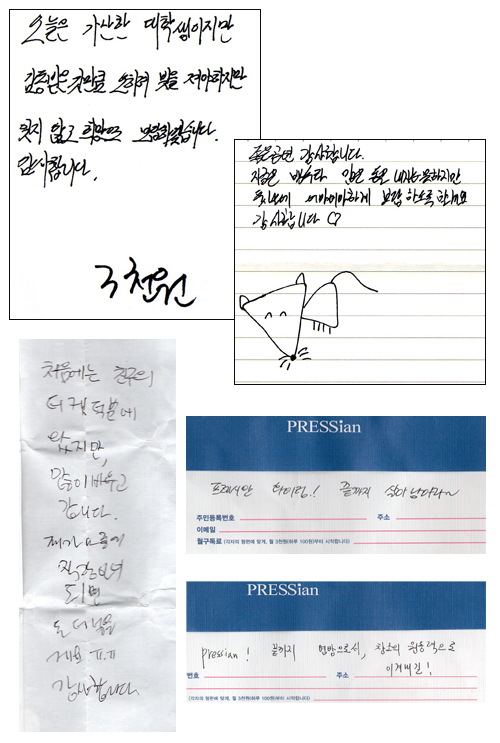 오늘은 가난한 대학생이지만
감동받은 것만큼 오히려 빚을 져야하지만
잊지 않고 희망으로 보답하겠습니다.
감사합니다.
3천원
좋은공연 감사합니다.
지금은 백수라 많은 돈을 내지는 못하지만
어마어마하게 보답 하도록 할게요
감사합니다 ♡
처음에는 친구의
티켓 덕분에
왔지만,
많이 배우고
갑니다.
제가 나중에
직장인이
되면
돈 더 낼
게요 ㅠ.ㅠ
감사합니다.
PRESSian
프레시안 화이팅! 끝까지 살아남아라~
주민등록번호 주소
이메일
월구독료 (각자의 형편에 맞게, 월 3천원(하루 100원)부터 시작합니다)
PRESSian
pressian! 끝까지 언론으로서, 창조의 원동력으로
이겨내길!
번호 주소
(각자의 형편에 맞게, 월 3천원(하루 100원)부터 시작합니다)